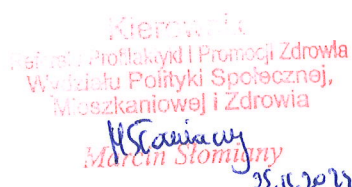 Kierownik
Referatu Profilaktyki i Promocji Zdrowia
Wydziału Polityki Społecznej,
Mieszkaniowej i Zdrowia
Marcin Słomiany